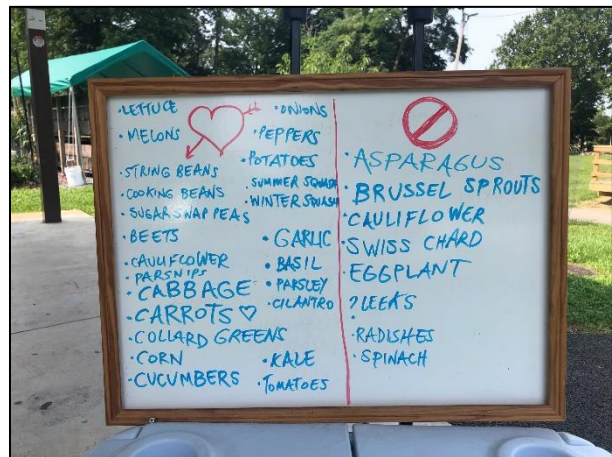 ·LETTUCE
·MELONS
·STRING BEANS
·COOKING BEANS
·SUGAR SNAP PEAS
·BEETS
·CAULIFLOWER
·PARSNIPS
·CABBAGE
·CARROTS ♡
·COLLARD GREENS
·CORN
·CUCUMBERS
·ONIONS
·PEPPERS
·POTATOES
·SUMMER SQUASH
·WINTER SQUASH
·GARLIC
·BASIL
·PARSLEY
·CILANTRO
·KALE
·TOMATOES
·ASPARAGUS
·BRUSSEL SPROUTS
·CAULIFLOWER
·SWISS CHARD
·EGGPLANT
?LEEKS
·
·RADISHES
·SPINACH